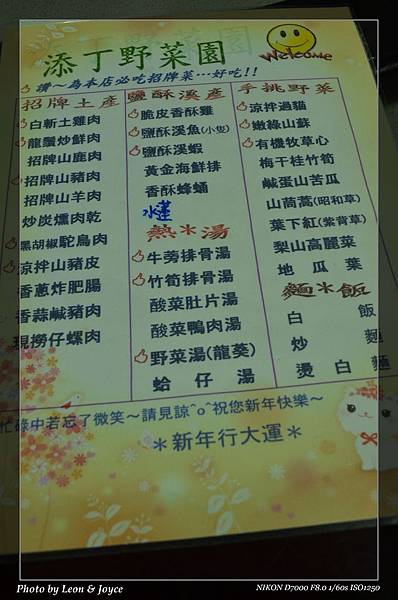 添丁野菜園
Welcome
讚～為本店必吃招牌菜…好吃!!
招牌土產
白斬土雞肉
龍鬚炒鮮肉
招牌山鹿肉
招牌山豬肉
招牌山羊肉
炒炭燻肉乾
黑胡椒駝鳥肉
涼拌山豬皮
香蔥炸肥腸
香蒜鹹豬肉
現撈仔螺肉
鹽酥溪產
脆皮香酥雞
鹽酥溪魚(小隻)
鹽酥溪蝦
黃金海鮮排
香酥蜂蛹
水蓮
熱＊湯
牛蒡排骨湯
竹筍排骨湯
酸菜肚片湯
酸菜鴨肉湯
野菜湯(龍葵)
蛤仔湯
手挑野菜
涼拌過貓
嫩綠山蘇
有機牧草心
梅干桂竹筍
鹹蛋山苦瓜
山茼蒿(昭和草)
葉下紅(紫背草)
梨山高麗菜
地瓜葉
麵＊飯
白飯
炒麵
燙白麵
忙碌中若忘了微笑～請見諒^o^祝您新年快樂～
＊新年行大運＊
Photo by Leon & Joyce
NIKON D7000 F8.0 1/60s ISO1250